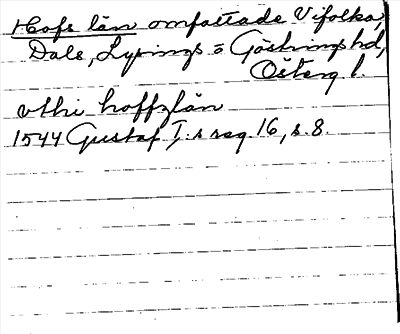 Hofs län omfattade Vifolka,
Dals, Lysings o Göstrings hd,
Österg l.
vthi hoffzlän
1544 Gustaf I:s reg. 16, s. 8.